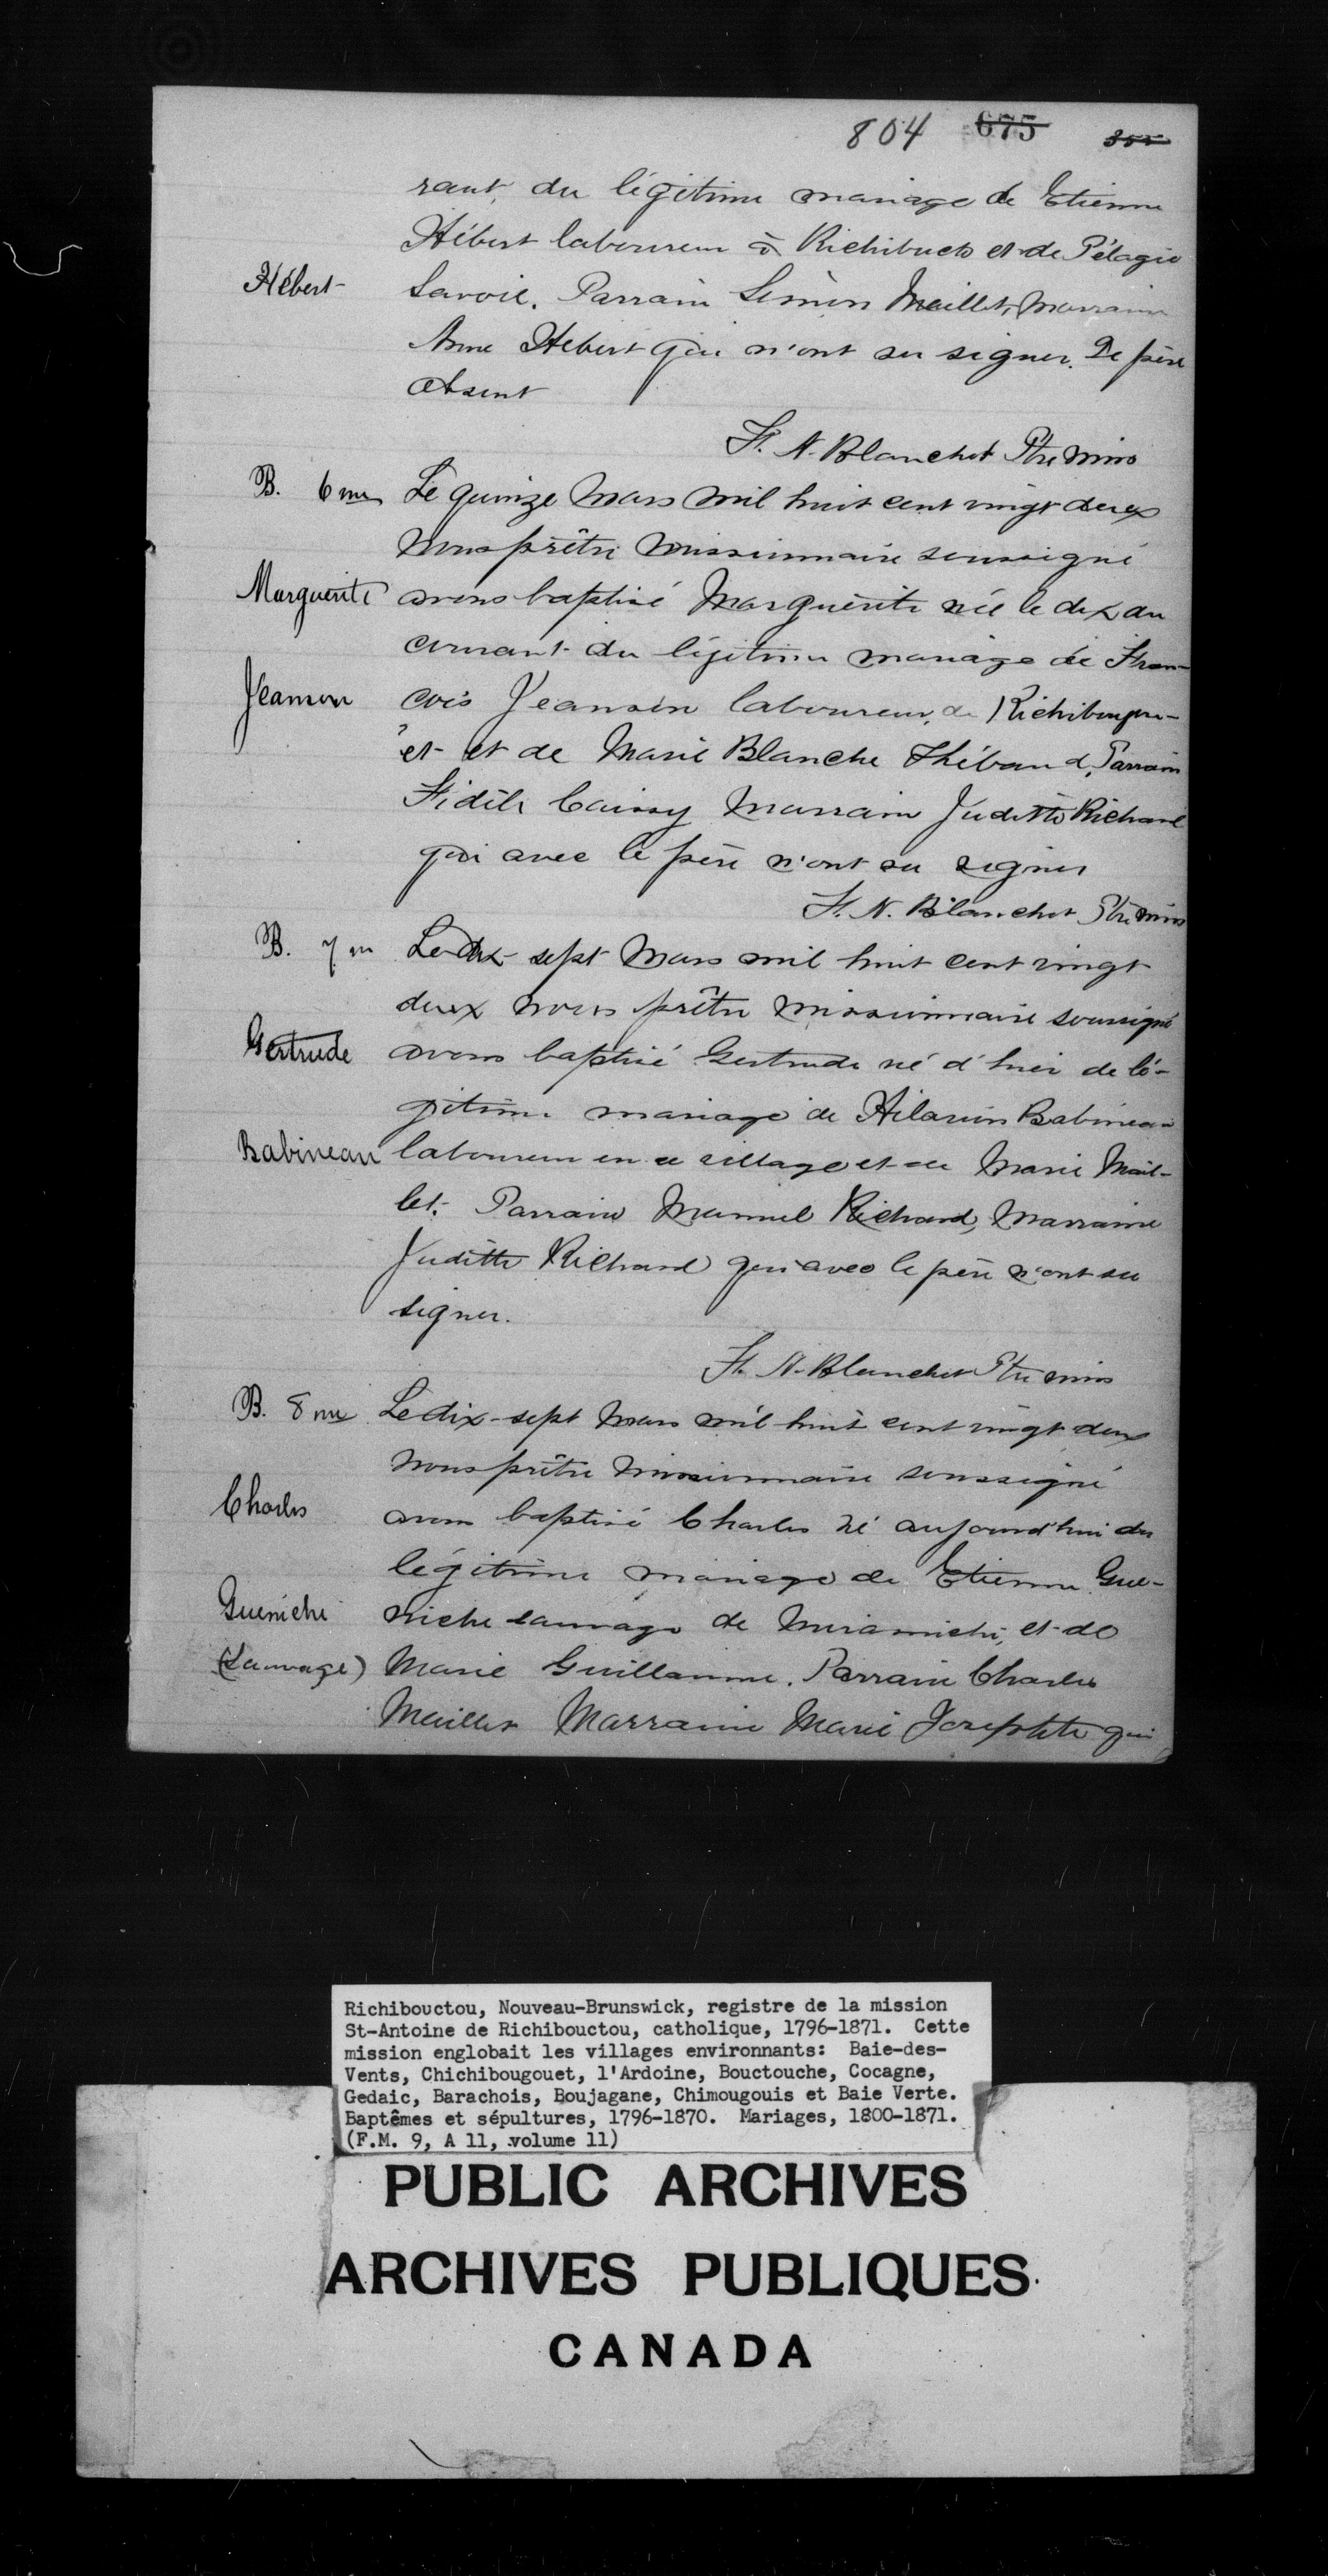 804 675 355
rant, du légitime mariage de Etienne
Hébert laboureur à Richibucto et de Pélagie
Hébert
Savoie. Parrain Simon Maillet, Marraine
Anne Hebert qui n'ont su signer. Le père
absent
F. N. Blanchet Ptre Miss
B. 6 me Le quinze Mars mil huit cent vingt deux
Nous prêtre missionnaire soussigné
Marguerite avons baptisé Marguerite née le dix du
courant du légitime mariage de Fran-
Jeanson cois Jeanson laboureur, de Richibougou-
et et de Marie Blanche Thébaud, Parrain
Fidèle Caissy Marraine Juditte Richard
qui avec le père n'ont su signer
F. N. Blanchet Ptre Miss
B. 7 m Le dix-sept Mars mil huit cent vingt
deux nous prêtre missionnaire soussigné
Gertrude avons baptisé Gertrude né d'hier de lé-
gitime mariage de Hilarion Babineau
Babineau laboureur en ce village et de Marie Mail-
let. Parrain Manuel Richard, Marraine
Juditte Richard qui avec le père n'ont su
signer.
F. N. Blanchet Ptre miss
B. 8 me Le dix-sept Mars mil huit cent vingt deux
Nous prêtre missionnaire soussigné
Charles avons baptisé Charles né aujourd'hui du
légitime mariage de Etienne Gue-
Gueniche niche sauvage de Miramichi, et de
(Sauvage) Marie Guillaume. Parrain Charles
Maillet Marraine Marie Josephte qui
Richibouctou, Nouveau-Brunswick, registre de la mission
St-Antoine de Richibouctou, catholique, 1796-1871. Cette
mission englobait les villages environnants: Baie-des-
Vents, Chichibougouet, l'Ardoine, Bouctouche, Cocagne,
Gedaic, Barachois, Boujagane, Chimougouis et Baie Verte.
Baptêmes et sépultures, 1796-1870. Mariages, 1800-1871.
(F.M. 9, A 11, volume 11)
PUBLIC ARCHIVES
ARCHIVES PUBLIQUES
CANADA